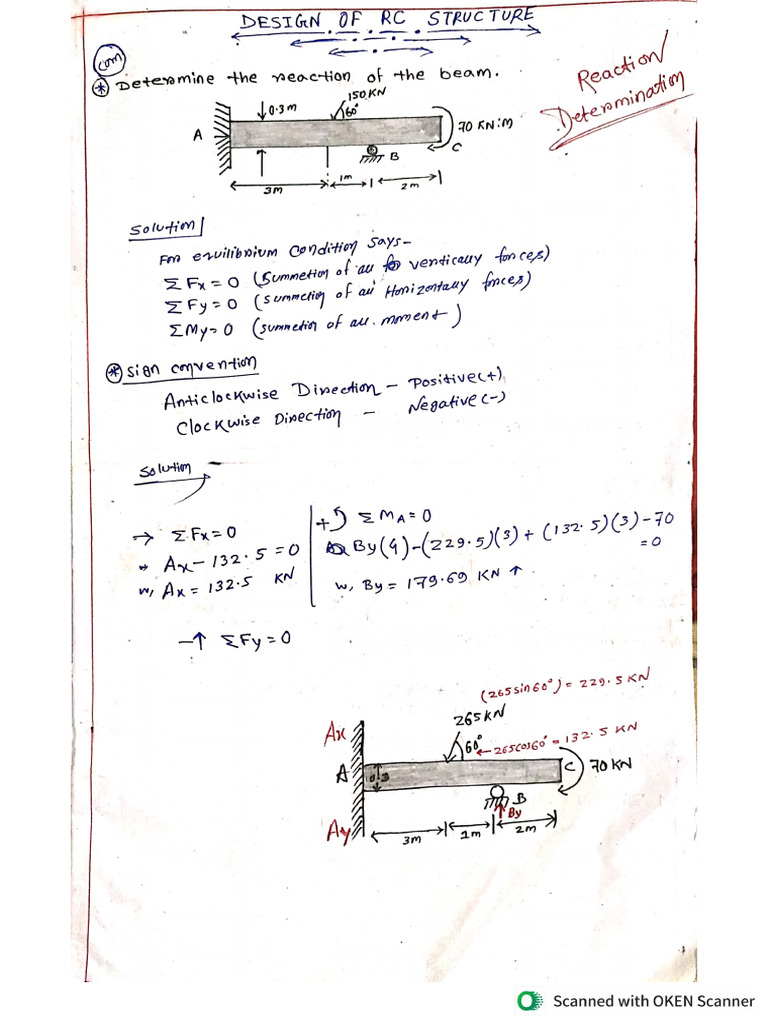 DESIGN OF RC STRUCTURE
com
* Determine the reaction of the beam.
Reaction
Determination
150KN
0.3m
60°
A
70 KN:M
B
C
3m
1m
2m
Solution
For equilibrium condition says-
ΣFx=0 (summetion of all vertically forces)
ΣFy=0 (summetion of all Horizontally forces)
ΣMy=0 (summetion of all. moment)
* Sign convention
Anticlockwise Direction - Positive(+)
Clockwise Direction - Negative(-)
Solution
→ ΣFx=0
Ax-132.5=0
Ax=132.5 KN
+ ΣMA=0
By(4)-(229.5)(3)+(132.5)(3)-70
=0
By=179.69 KN ↑
-↑ ΣFy=0
(265sin60°)=229.5KN
265KN
Ax
60°
←265cos60°=132.5 KN
A
0.3
C
70KN
B
By
Ay
3m
1m
2m
Scanned with OKEN Scanner